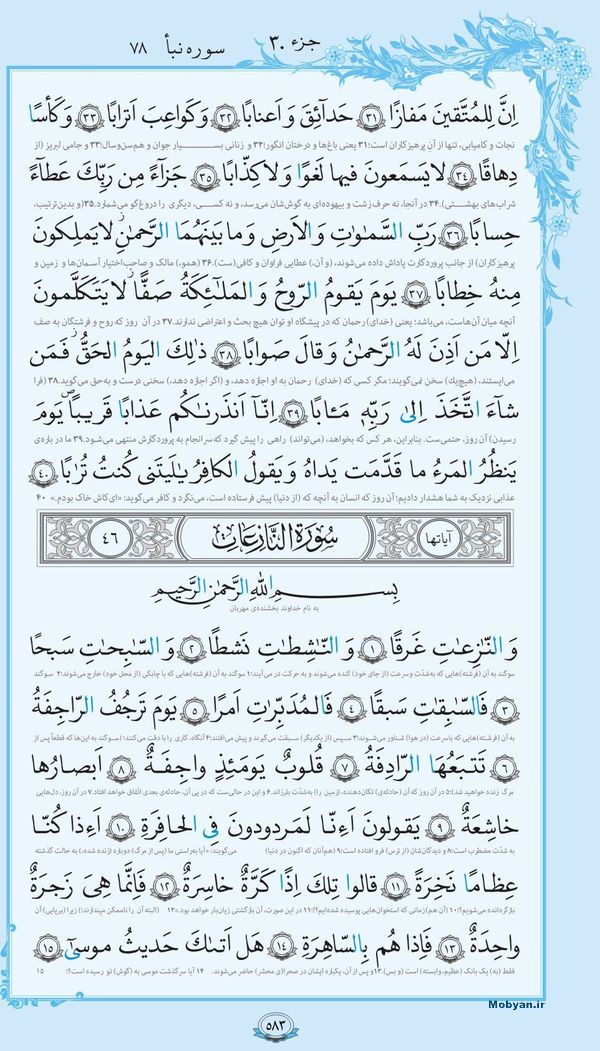 جزء ۳۰ سوره نبأ ۷۸
اِنَّ لِلمُتَّقينَ مَفازًا ﴿۳۱﴾ حَدآئِقَ وَ اَعنابًا ﴿۳۲﴾ وَ كَواعِبَ اَترابًا ﴿۳۳﴾ وَ كَأسًا
نجات و کامیابی، تنها از آنِ پرهیزکاران است؛۳۱ یعنی باغ‌ها و درختان انگور؛۳۲ و زنانی بسیار جوان و هم‌سن‌وسال؛۳۳ و جامی لبریز (از
دِهاقًا ﴿۳۴﴾ لا يَسمَعونَ فيها لَغوًا وَ لا كِذّابًا ﴿۳۵﴾ جَزآءً مِن رَبِّكَ عَطآءً
شراب‌های بهشتی).۳۴ در آنجا، نه حرف زشت و بیهوده‌ای به گوش‌شان می‌رسد، و نه کسی، دیگری را دروغ‌گو می‌شمارد.۳۵(و بدین‌ترتیب،
حِسابًا ﴿۳۶﴾ رَبِّ السَّماواتِ وَ الاَرضِ وَ ما بَينَهُمَا الرَّحمٰنِ لا يَملِكونَ
پرهیزکاران) از جانب پروردگارت پاداش داده می‌شوند، (و آن،) عطایی فراوان و کافی(ست).۳۶ (همو،) مالک و صاحب‌اختیار آسمان‌ها و زمین و
مِنهُ خِطابًا ﴿۳۷﴾ يَومَ يَقومُ الرّوحُ وَ المَلـٰئِكَةُ صَفًّا لا يَتَكَلَّمونَ
آنچه میان آن‌هاست، می‌باشد؛ یعنی (خدای) رحمان که در پیشگاه او توان هیچ بحث و اعتراضی ندارند.۳۷ در آن روز که روح و فرشتگان به صف
اِلّا مَن اَذِنَ لَهُ الرَّحمٰنُ وَ قالَ صَوابًا ﴿۳۸﴾ ذٰلِكَ اليَومُ الحَقُّ فَمَن
می‌ایستند، (هیچ‌یک) سخن نمی‌گویند؛ مگر کسی که (خدای) رحمان به او اجازه دهد، و (اگر اجازه دهد،) سخنی درست و به‌حق می‌گوید.۳۸ (فرا
شآءَ اتَّخَذَ اِلىٰ رَبِّهٖ مَـٔابًا ﴿۳۹﴾ اِنّآ اَنذَرنـٰكُم عَذابًا قَريبًا يَومَ
رسیدنِ) آن روز، حتمی‌ست. بنابراین، هر کس که بخواهد، (می‌تواند) راهی را پیش گیرد که سرانجام به پروردگارش منتهی می‌شود.۳۹ ما درباره‌ی
يَنظُرُ المَرءُ ما قَدَّمَت يَداهُ وَ يَقولُ الكافِرُ يٰلَيتَنى كُنتُ تُرابًا ﴿۴۰﴾
عذابی نزدیک به شما هشدار دادیم؛ آن روز که انسان به آنچه که (از دنیا) پیش فرستاده است، می‌نگرد و کافر می‌گوید: «ای‌کاش خاک بودم.» ۴۰
آیاتها سُورَةُ النَّازِعَات ۴۶
بِسمِ اللّٰهِ الرَّحمٰنِ الرَّحيم
به نام خداوند بخشنده‌ی مهربان
وَ النّٰزِعٰتِ غَرقًا ﴿۱﴾ وَ النّٰشِطٰتِ نَشطًا ﴿۲﴾ وَ السّٰبِحٰتِ سَبحًا
سوگند به آن (فرشته)هایی که به‌شدّت و سرعت (از جای خود) کنده می‌شوند و به حرکت در می‌آیند؛۱ سوگند به آن (فرشته)هایی که با چابکی (از محل خود) خارج می‌شوند؛۲ سوگند
﴿۳﴾ فَالسّٰبِقٰتِ سَبقًا ﴿۴﴾ فَالمُدَبِّرٰتِ اَمرًا ﴿۵﴾ يَومَ تَرجُفُ الرّاجِفَةُ
به آن (فرشته)هایی که باسرعت (در هوا) شناور می‌شوند؛۳ سپس (از یکدیگر) سبقت می‌گیرند و پیش می‌افتند؛۴ آنگاه، کاری را با دقت می‌کنند؛ (سوگند به این‌ها که قطعاً پس از
﴿۶﴾ تَتبَعُهَا الرّادِفَةُ ﴿۷﴾ قُلوبٌ يَومَئِذٍ واجِفَةٌ ﴿۸﴾ اَبصارُها
مرگ زنده خواهید شد)؛۵ در آن روز که آن (حادثه‌ی) تکان‌دهنده، (زمین را) به‌شدّت بلرزاند،۶ و این در حالی‌ست که در پی آن، حادثه‌ی بعدی اتّفاق خواهد افتاد.۷ در آن روز، دل‌هایی
خاشِعَةٌ ﴿۹﴾ يَقولونَ اَءِنّا لَمَردودونَ فِى الحافِرَةِ ﴿۱۰﴾ اَءِذا كُنّا
به شدّت مضطرب است؛۸ و دیدگان‌شان (از ترس) فرو افتاده است؛۹ (هم‌آنان که اکنون در دنیا) می‌گویند: «آیا به‌راستی ما (پس از مرگ) دوباره (زنده شده،) به حالت گذشته
عِظامًا نَخِرَةً ﴿۱۱﴾ قالوا تِلكَ اِذًا كَرَّةٌ خاسِرَةٌ ﴿۱۲﴾ فَاِنَّما هِىَ زَجرَةٌ
بازگردانده می‌شویم؟!۱۰ (آن هم) زمانی که استخوان‌هایی پوسیده شده‌ایم؟!»۱۱ در این صورت، آن بازگشتی زیان‌بار خواهد بود.»۱۲ (البته آن را ناممکن مپندارند؛) زیرا (برپایی) آن
واحِدَةٌ ﴿۱۳﴾ فَاِذا هُم بِالسّاهِرَةِ ﴿۱۴﴾ هَل اَتىٰكَ حَديثُ موسىٰ ﴿۱۵﴾
فقط (به) یک بانگ (عظیم، وابسته) است (و بس).۱۳ و پس از آن، یکباره ایشان در صحرا(ی محشر) حاضر می‌شوند. ۱۴ آیا سرگذشت موسی به (گوش) تو رسیده است؟! ۱۵
Mobyan.ir
۵۸۳